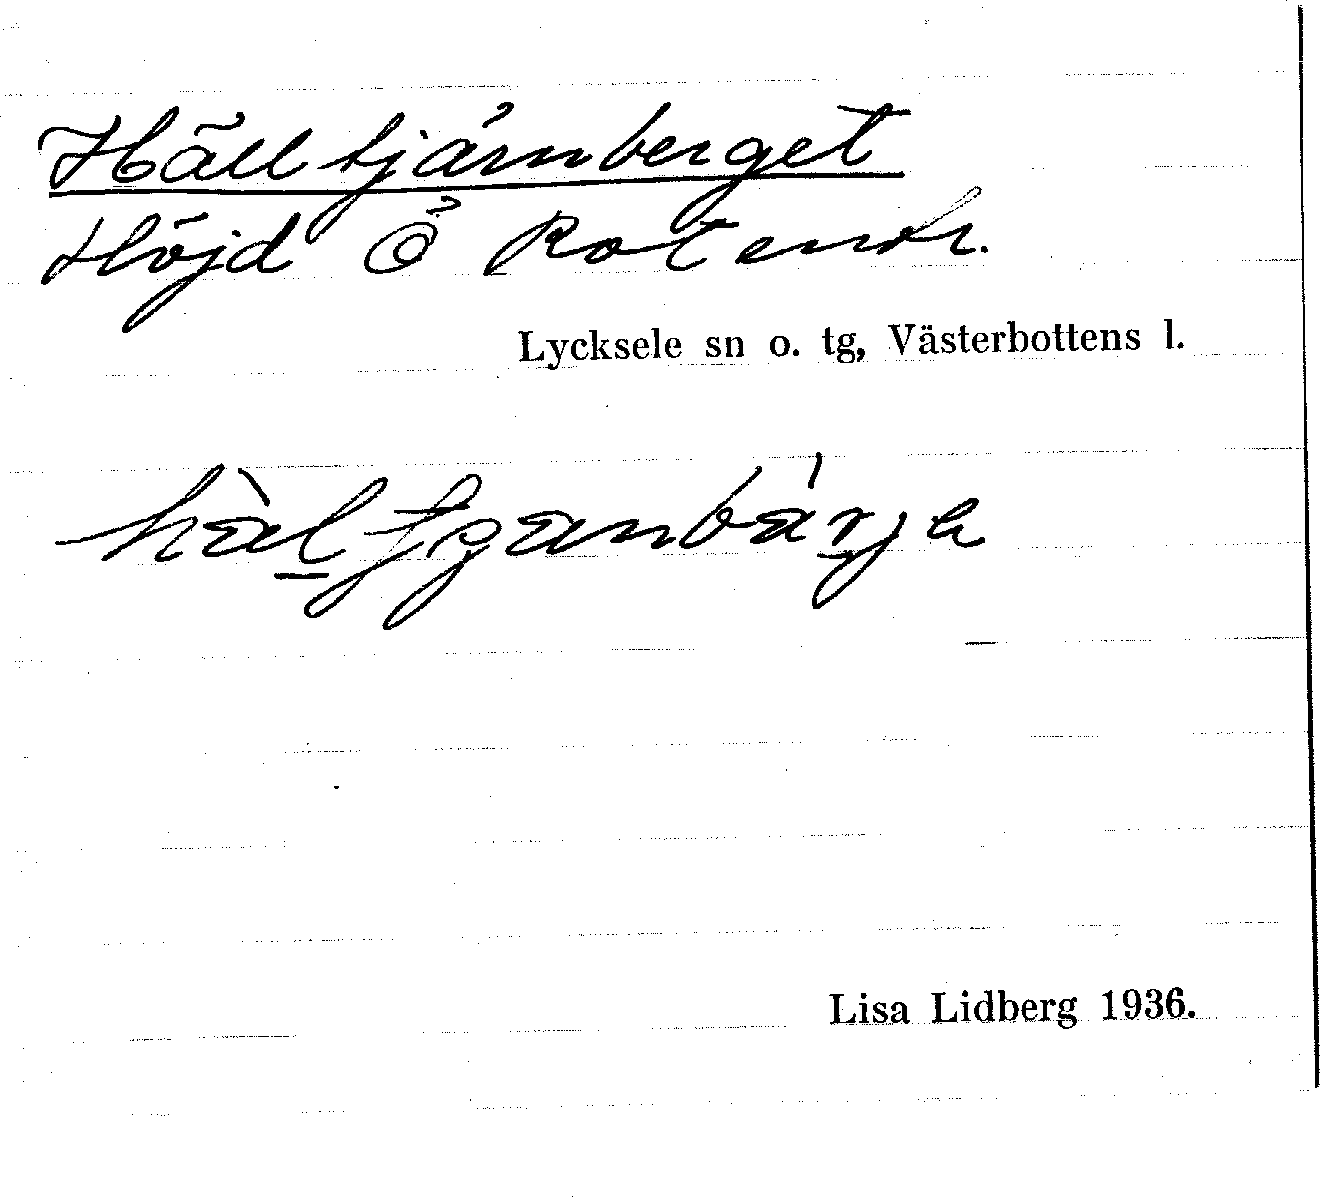 Hälltjärnberget
Höjd Ö Rotentr.
Lycksele sn o. tg, Västerbottens l.
Lisa Lidberg 1936.